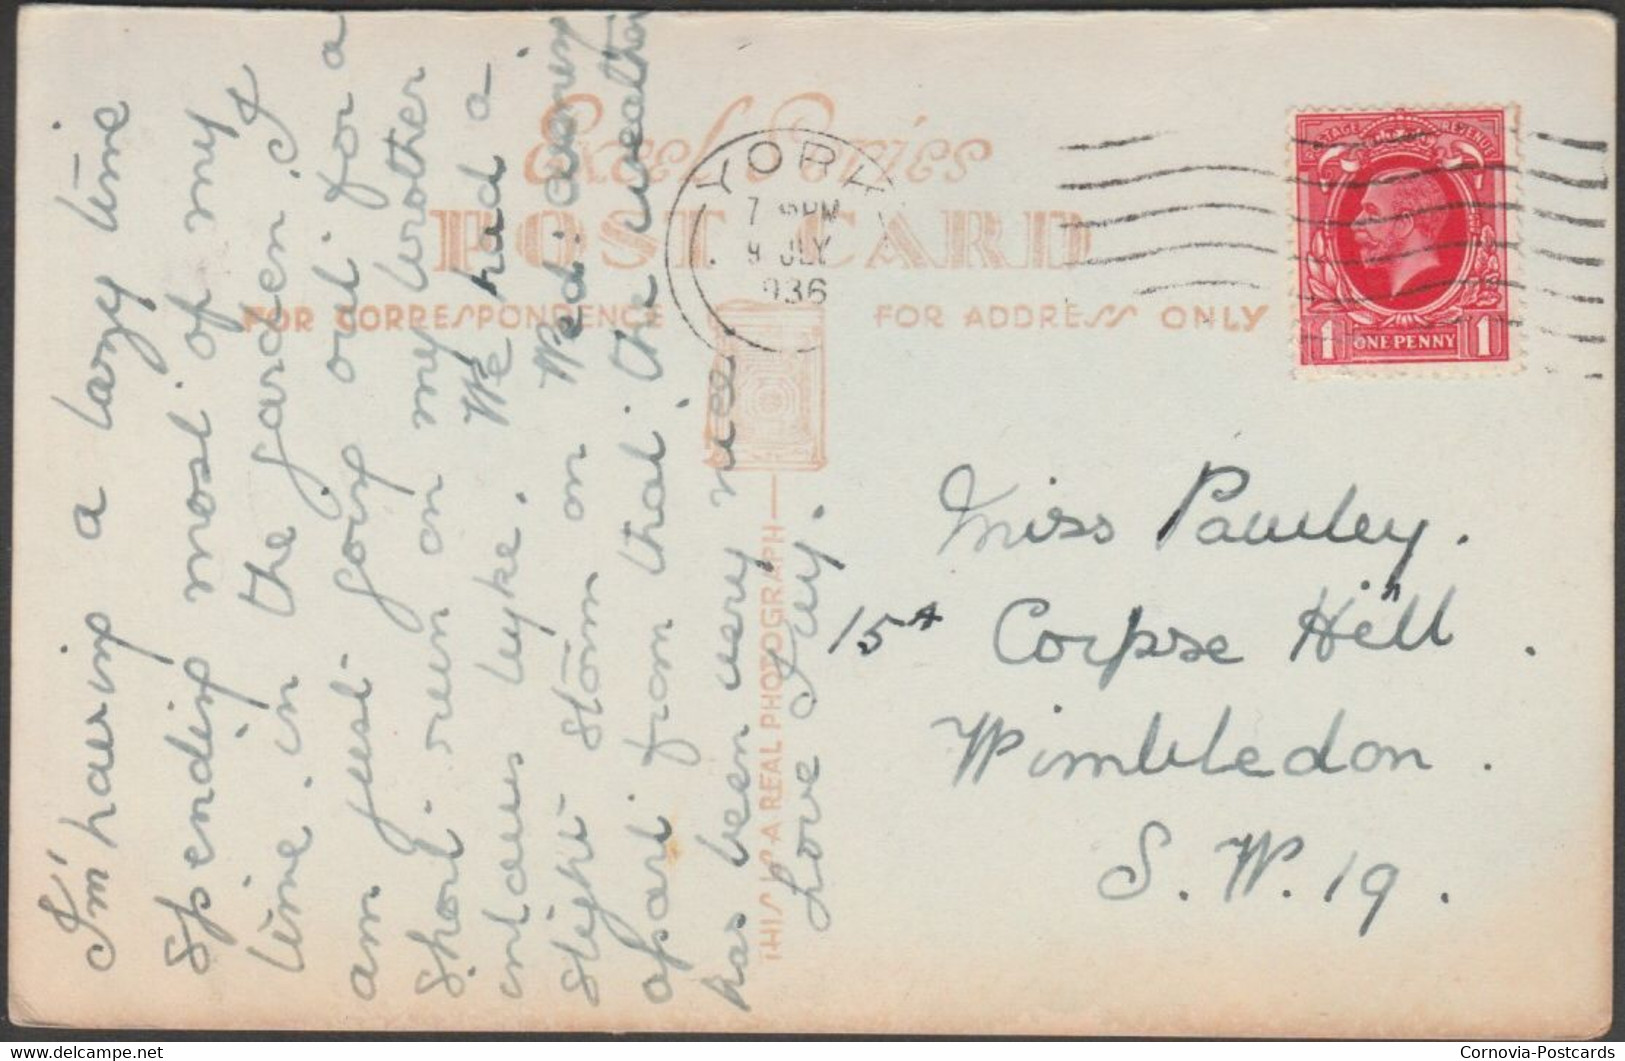 Excel Series
POST CARD
FOR CORRESPONDENCE
FOR ADDRESS ONLY
THIS IS A REAL PHOTOGRAPH
YORK
7
PM
9 JLY
1936
POSTAGE
REVENUE
1 ONE PENNY 1
I'm having a lazy time
spending most of my
time in the garden I
am just going out for a
short run on my brother
We had a
slight storm on Wed: evening
apart from that the weather
has been very nice
Love
Miss Pawley.
15A Corpse Hill.
Wimbledon.
S.W.19.
Cornovia-Postcards